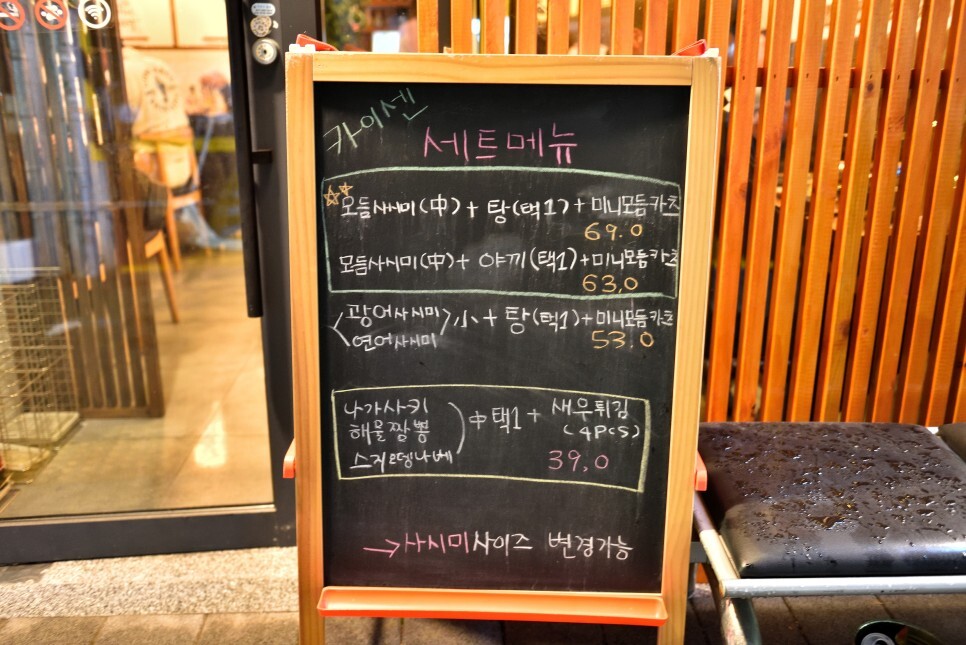 카이센
세트메뉴
모듬사시미(中) + 탕(택1) + 미니모듬카츠
69.0
모듬사시미(中) + 야끼(택1) + 미니모듬카츠
63,0
광어사시미
연어사시미
小 + 탕(택1) + 미니모듬카츠
53.0
나가사키
해물짬뽕
스지오뎅나베
中 택1 + 새우튀김
(4PCS)
39,0
→사시미사이즈 변경가능